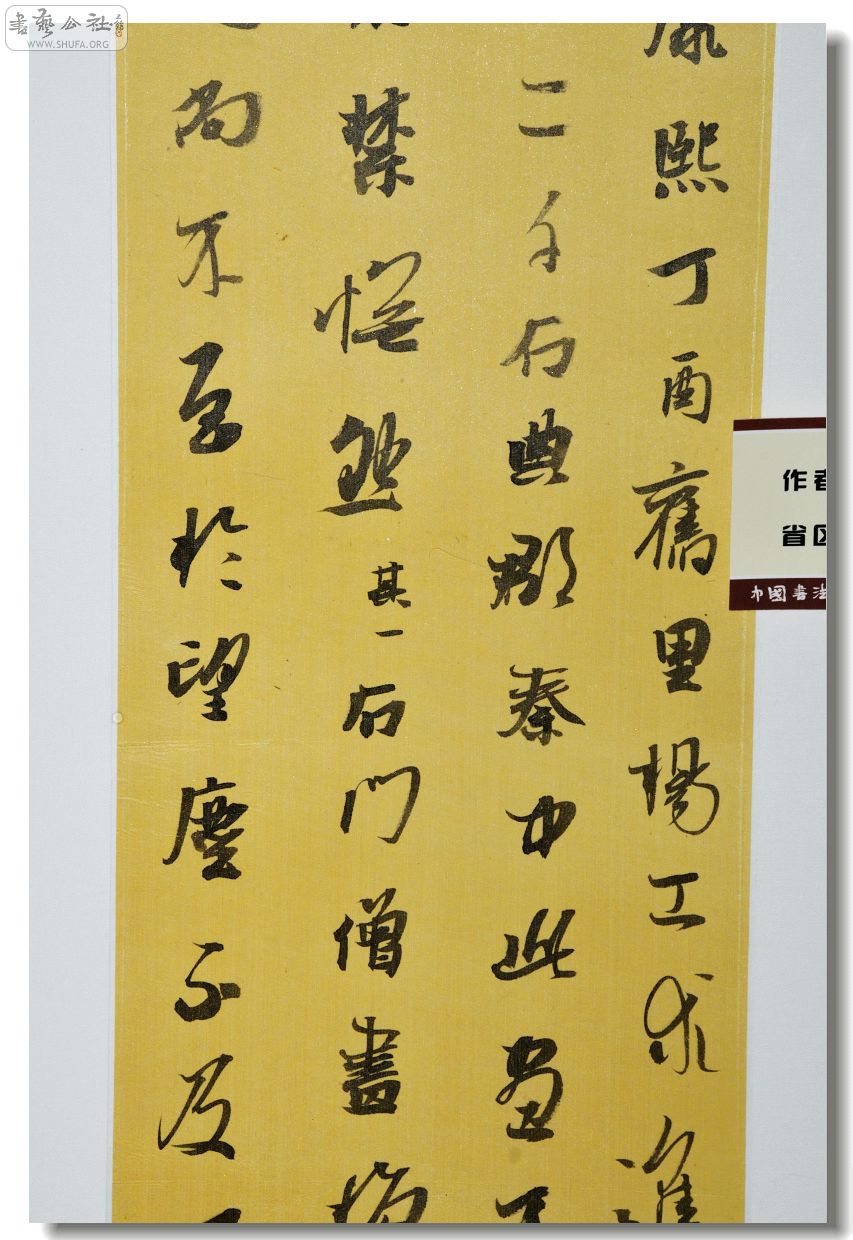 書藝公社
WWW.SHUFA.ORG
康熙丁酉舊里楊工求進
二千石典郡秦中此畫不
禁憮然其一石門僧畫梅
尚不至於望塵不及
作者
省区
中國書法